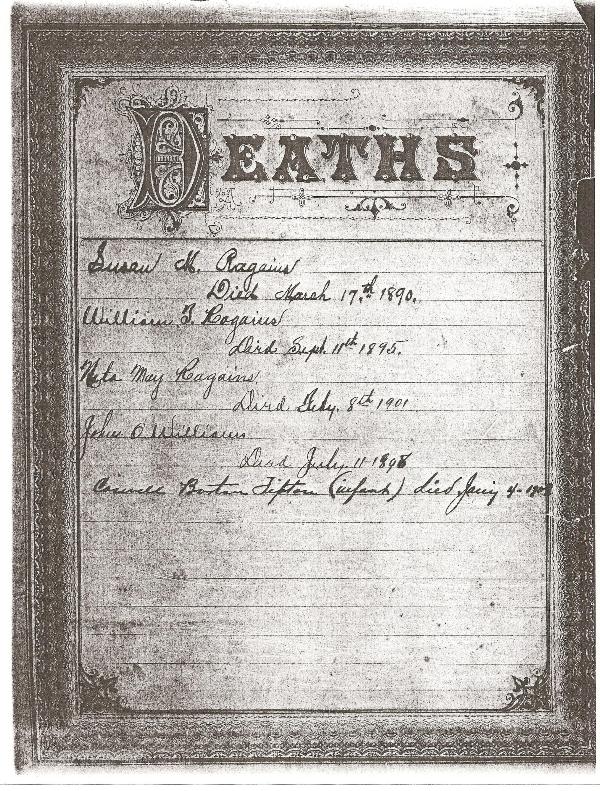 DEATHS
Susan M. Ragains
Died March 17th 1890.
William T. Ragains
Died Sept. 11th 1895.
May Ragains
Died Feby. 8th 1901
John O Williams
Died July 11 1898
Boston Tipton (infant) died Jany 4-